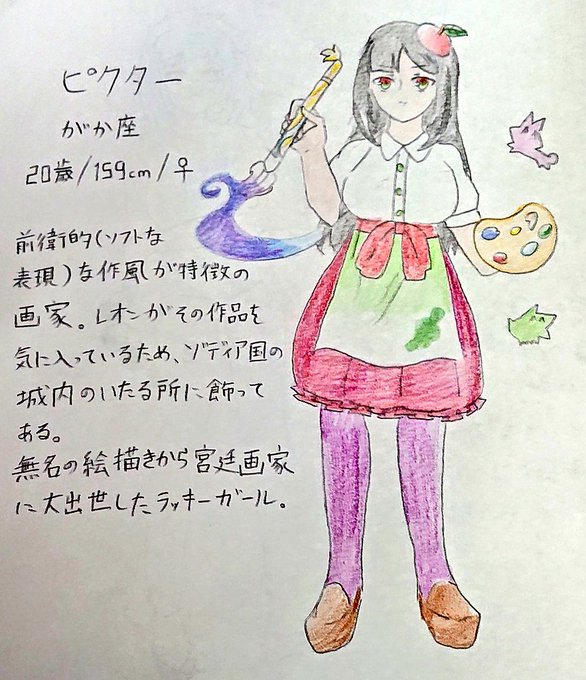 ピクター
がか座
20歳/159cm/♀
前衛的(ソフトな
表現)な作風が特徴の
画家。レオンがその作品を
気に入っているため、ゾディア国の
城内のいたる所に飾って
ある。
無名の絵描きから宮廷画家
に大出世したラッキーガール。